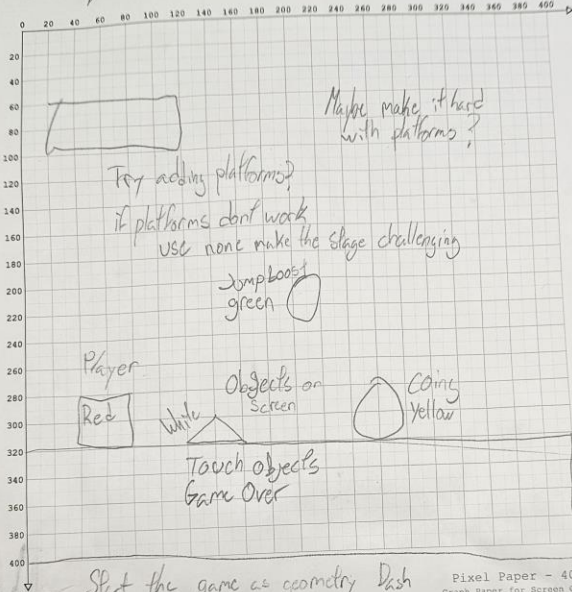 0 20 40 60 80 100 120 140 160 180 200 220 240 260 280 300 320 340 360 380 400
20
40
60
80
100
120
140
160
180
200
220
240
260
280
300
320
340
360
380
400
Maybe make it hard
with platforms?
Try adding platforms?
if platforms dont work
use none make the stage challenging
Jump boost
green
Player
Red
White
Objects on
Screen
Coins
Yellow
Touch objects
Game Over
the game as geometry Dash
Pixel Paper - 40